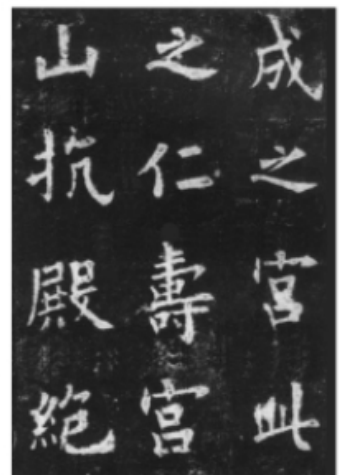 成之宫此
之仁壽宫
山抗殿絶